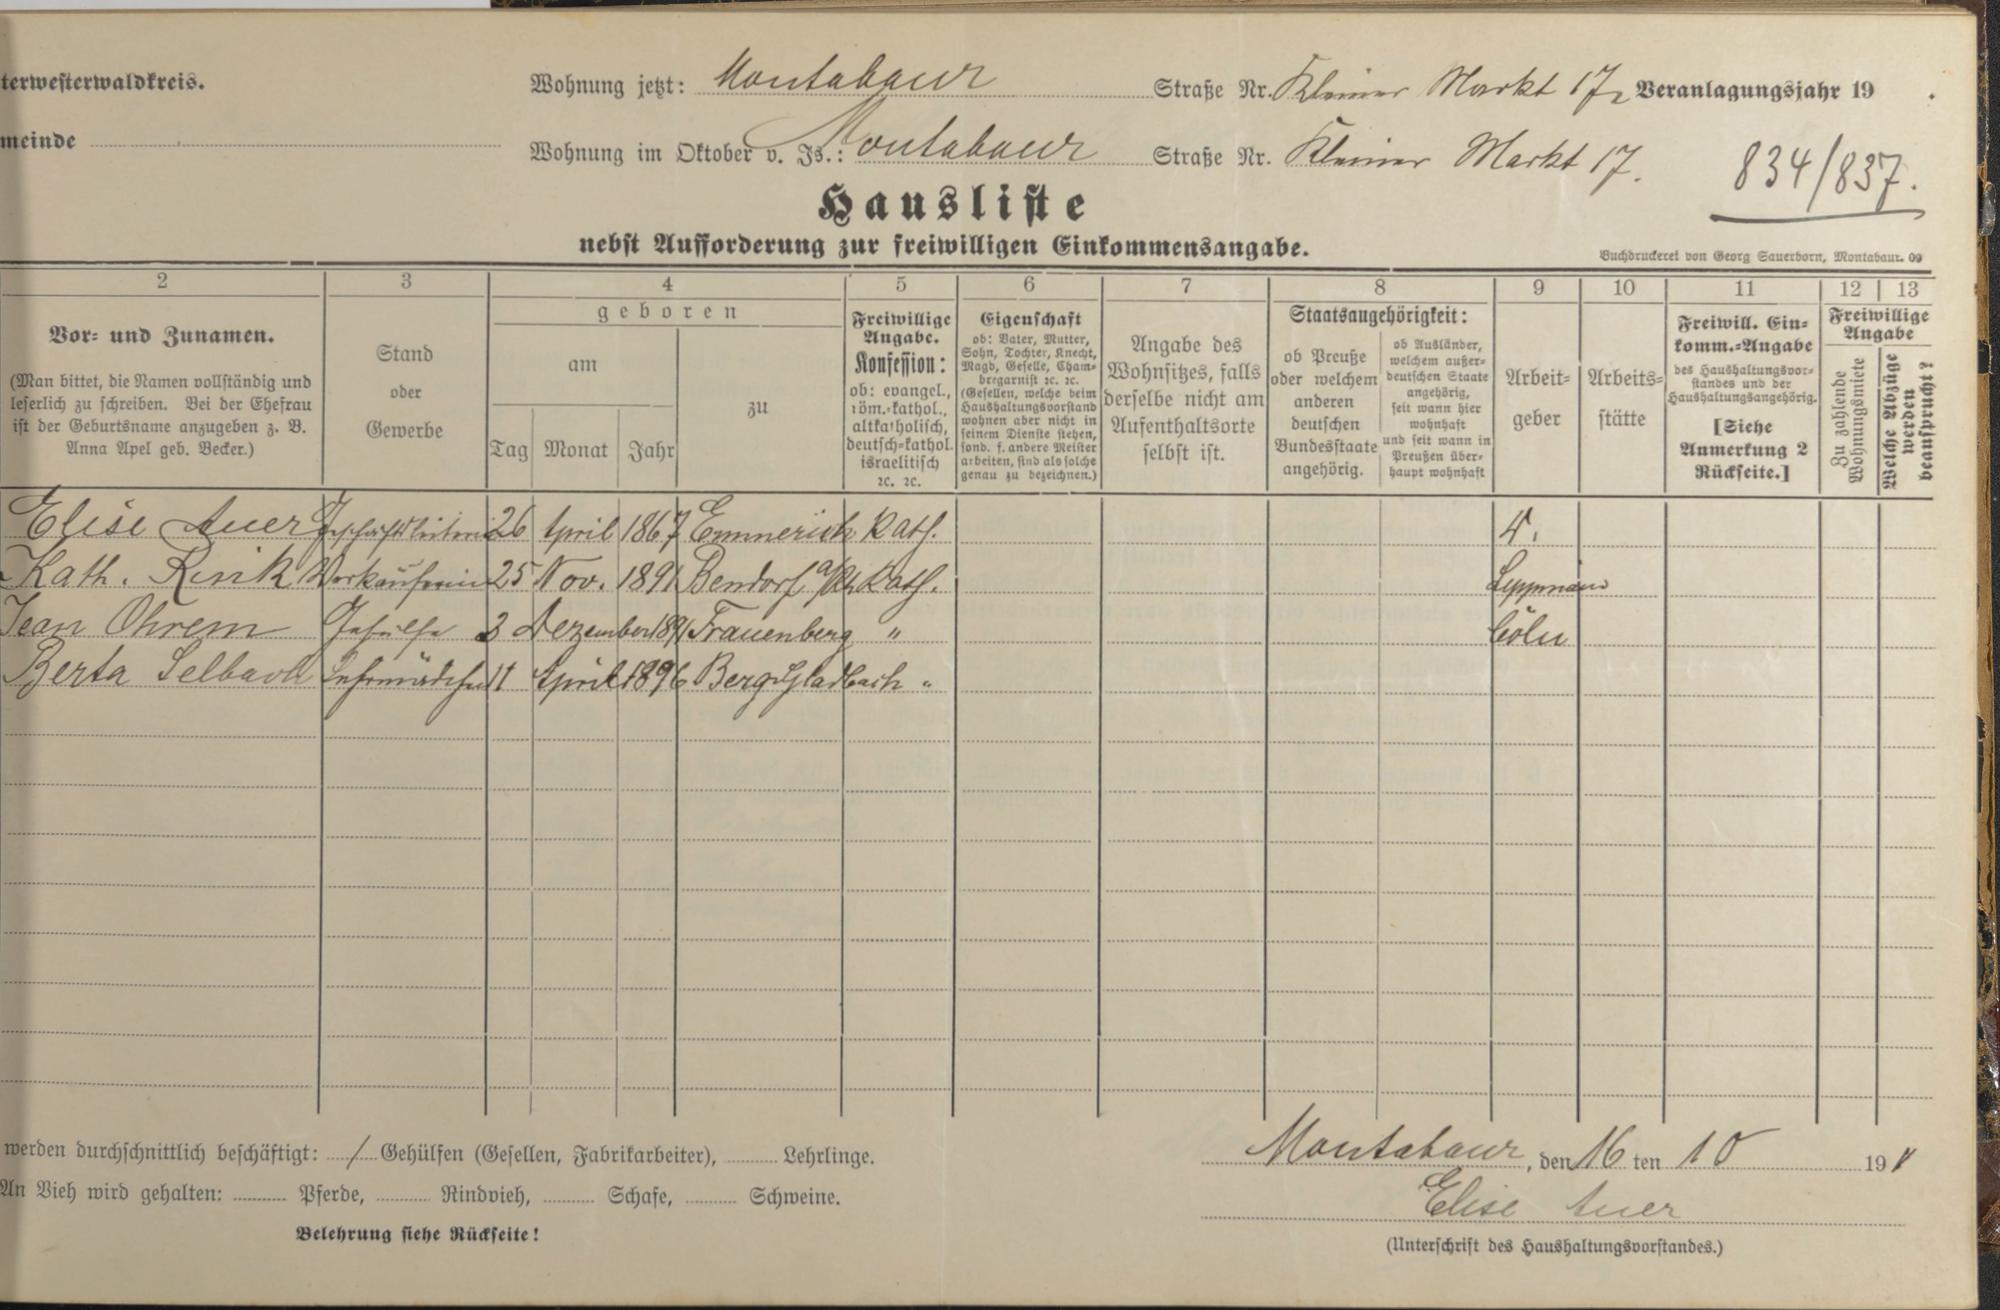 terwesterwaldkreis.
Wohnung jetzt: Montabaur Straße Nr. Kleiner Markt 17 Veranlagungsjahr 19 .
meinde
Wohnung im Oktober v. Js.: Montabaur Straße Nr. Kleiner Markt 17.
834/837.
Hausliste
nebst Aufforderung zur freiwilligen Einkommensangabe.
Buchdruckerei von Georg Sauerborn, Montabaur. 09
2 3 4 5 6 7 8 9 10 11 12 13
Vor- und Zunamen.
(Man bittet, die Namen vollständig und
leserlich zu schreiben. Bei der Ehefrau
ist der Geburtsname anzugeben z. B.
Anna Apel geb. Becker.)
Stand
oder
Gewerbe
geboren
am
Tag Monat Jahr
zu
Freiwillige
Angabe.
Konfession:
ob: evangel.,
röm.-kathol.,
altkatholisch,
deutsch-kathol.
israelitisch
ꝛc. ꝛc.
Eigenschaft
ob: Vater, Mutter,
Sohn, Tochter, Knecht,
Magd, Geselle, Cham-
bregarnist ꝛc. ꝛc.
(Gesellen, welche beim
Haushaltungsvorstand
wohnen aber nicht in
seinem Dienste stehen,
sond. f. andere Meister
arbeiten, sind als solche
genau zu bezeichnen.)
Angabe des
Wohnsitzes, falls
derselbe nicht am
Aufenthaltsorte
selbst ist.
Staatsangehörigkeit:
ob Preuße
oder welchem
anderen
deutschen
Bundesstaate
angehörig.
ob Ausländer,
welchem außer-
deutschen Staate
angehörig,
seit wann hier
wohnhaft
und seit wann in
Preußen über-
haupt wohnhaft
Arbeit-
geber
Arbeits-
stätte
Freiwill. Ein-
komm.-Angabe
des Haushaltungsvor-
standes und der
Haushaltungsangehörig.
[Siehe
Anmerkung 2
Rückseite.]
Freiwillige
Angabe
Zu zahlende
Wohnungsmiete
Welche Abzüge
werden
beansprucht?
Elise Auer Geschäftsleiterin 26 April 1867 Emmerich Kath.
Kath. Rinik Verkäuferin 25 Nov. 1891 Bendorf a/Rh Kath. Leppmann
Jean Ohrem Gehülfe 3 Dezember 1891 Frauenberg " Cöln
Berta Selbach Lehrmädchen 11 April 1896 Berg. Gladbach "
werden durchschnittlich beschäftigt: / Gehülfen (Gesellen, Fabrikarbeiter), Lehrlinge.
An Vieh wird gehalten: Pferde, Rindvieh, Schafe, Schweine.
Belehrung siehe Rückseite!
Montabaur, den 16 ten 10 191
Elise Auer
(Unterschrift des Haushaltungsvorstandes.)